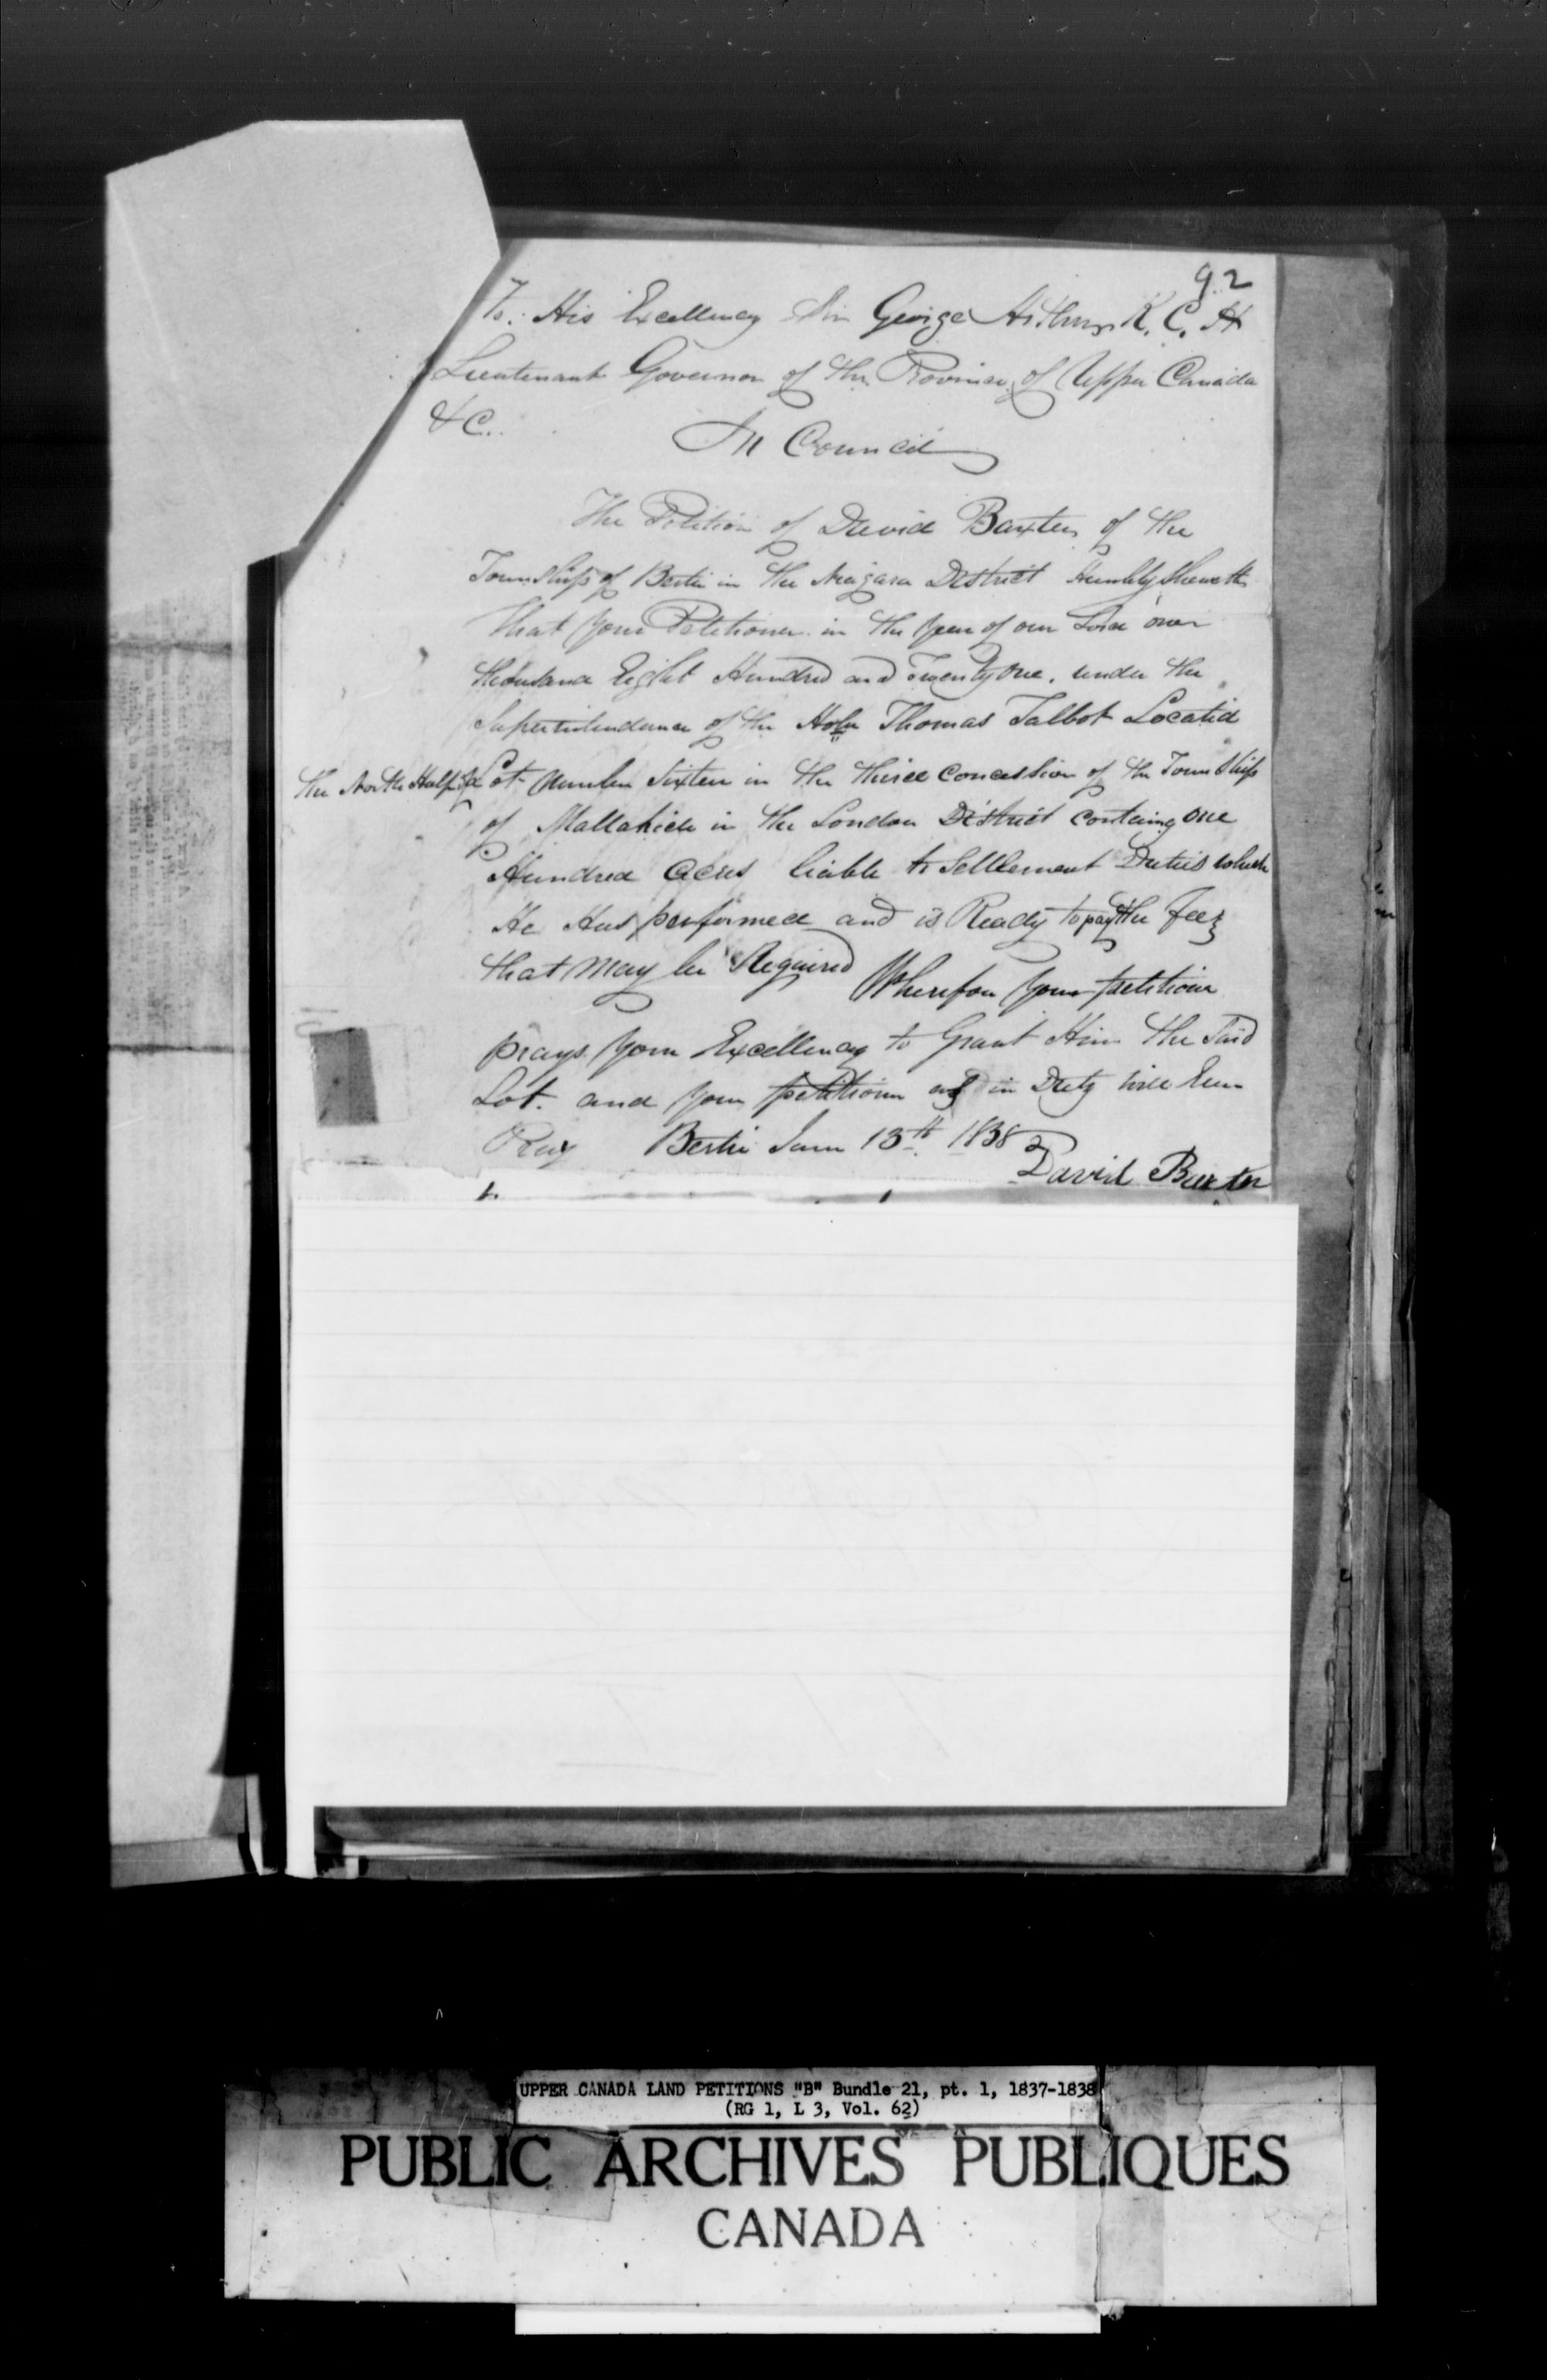 92
To. His Excellency Sir George Arthur K. C. H
Lieutenant Governor of the Province of Upper Canada
&C..
In Council
The Petition of David Baxter of the
Township of Bertie in the Niagara District Humbly Sheweth
that your Petitioner in the year of our Lord one
thousand Eight Hundred and Twenty one. under the
Superintendance of the Honle Thomas Talbot Located
the North Half of Lot Number Sixteen in the third Concession of the Township
of Mallahide in the London District Containg one
Hundred Acres liable to Settlement Duties which
He Has performed and is Ready to pay the fees
that may be Required Wherefore your petitioner
prays your Excellency to Grant Him the Said
Lot. and your petitioner as in Duty will Ever
Pray Bertie June 13th. 1838
David Baxter
UPPER CANADA LAND PETITIONS "B" Bundle 21, pt. 1, 1837-1838
(RG 1, L 3, Vol. 62)
PUBLIC ARCHIVES PUBLIQUES
CANADA